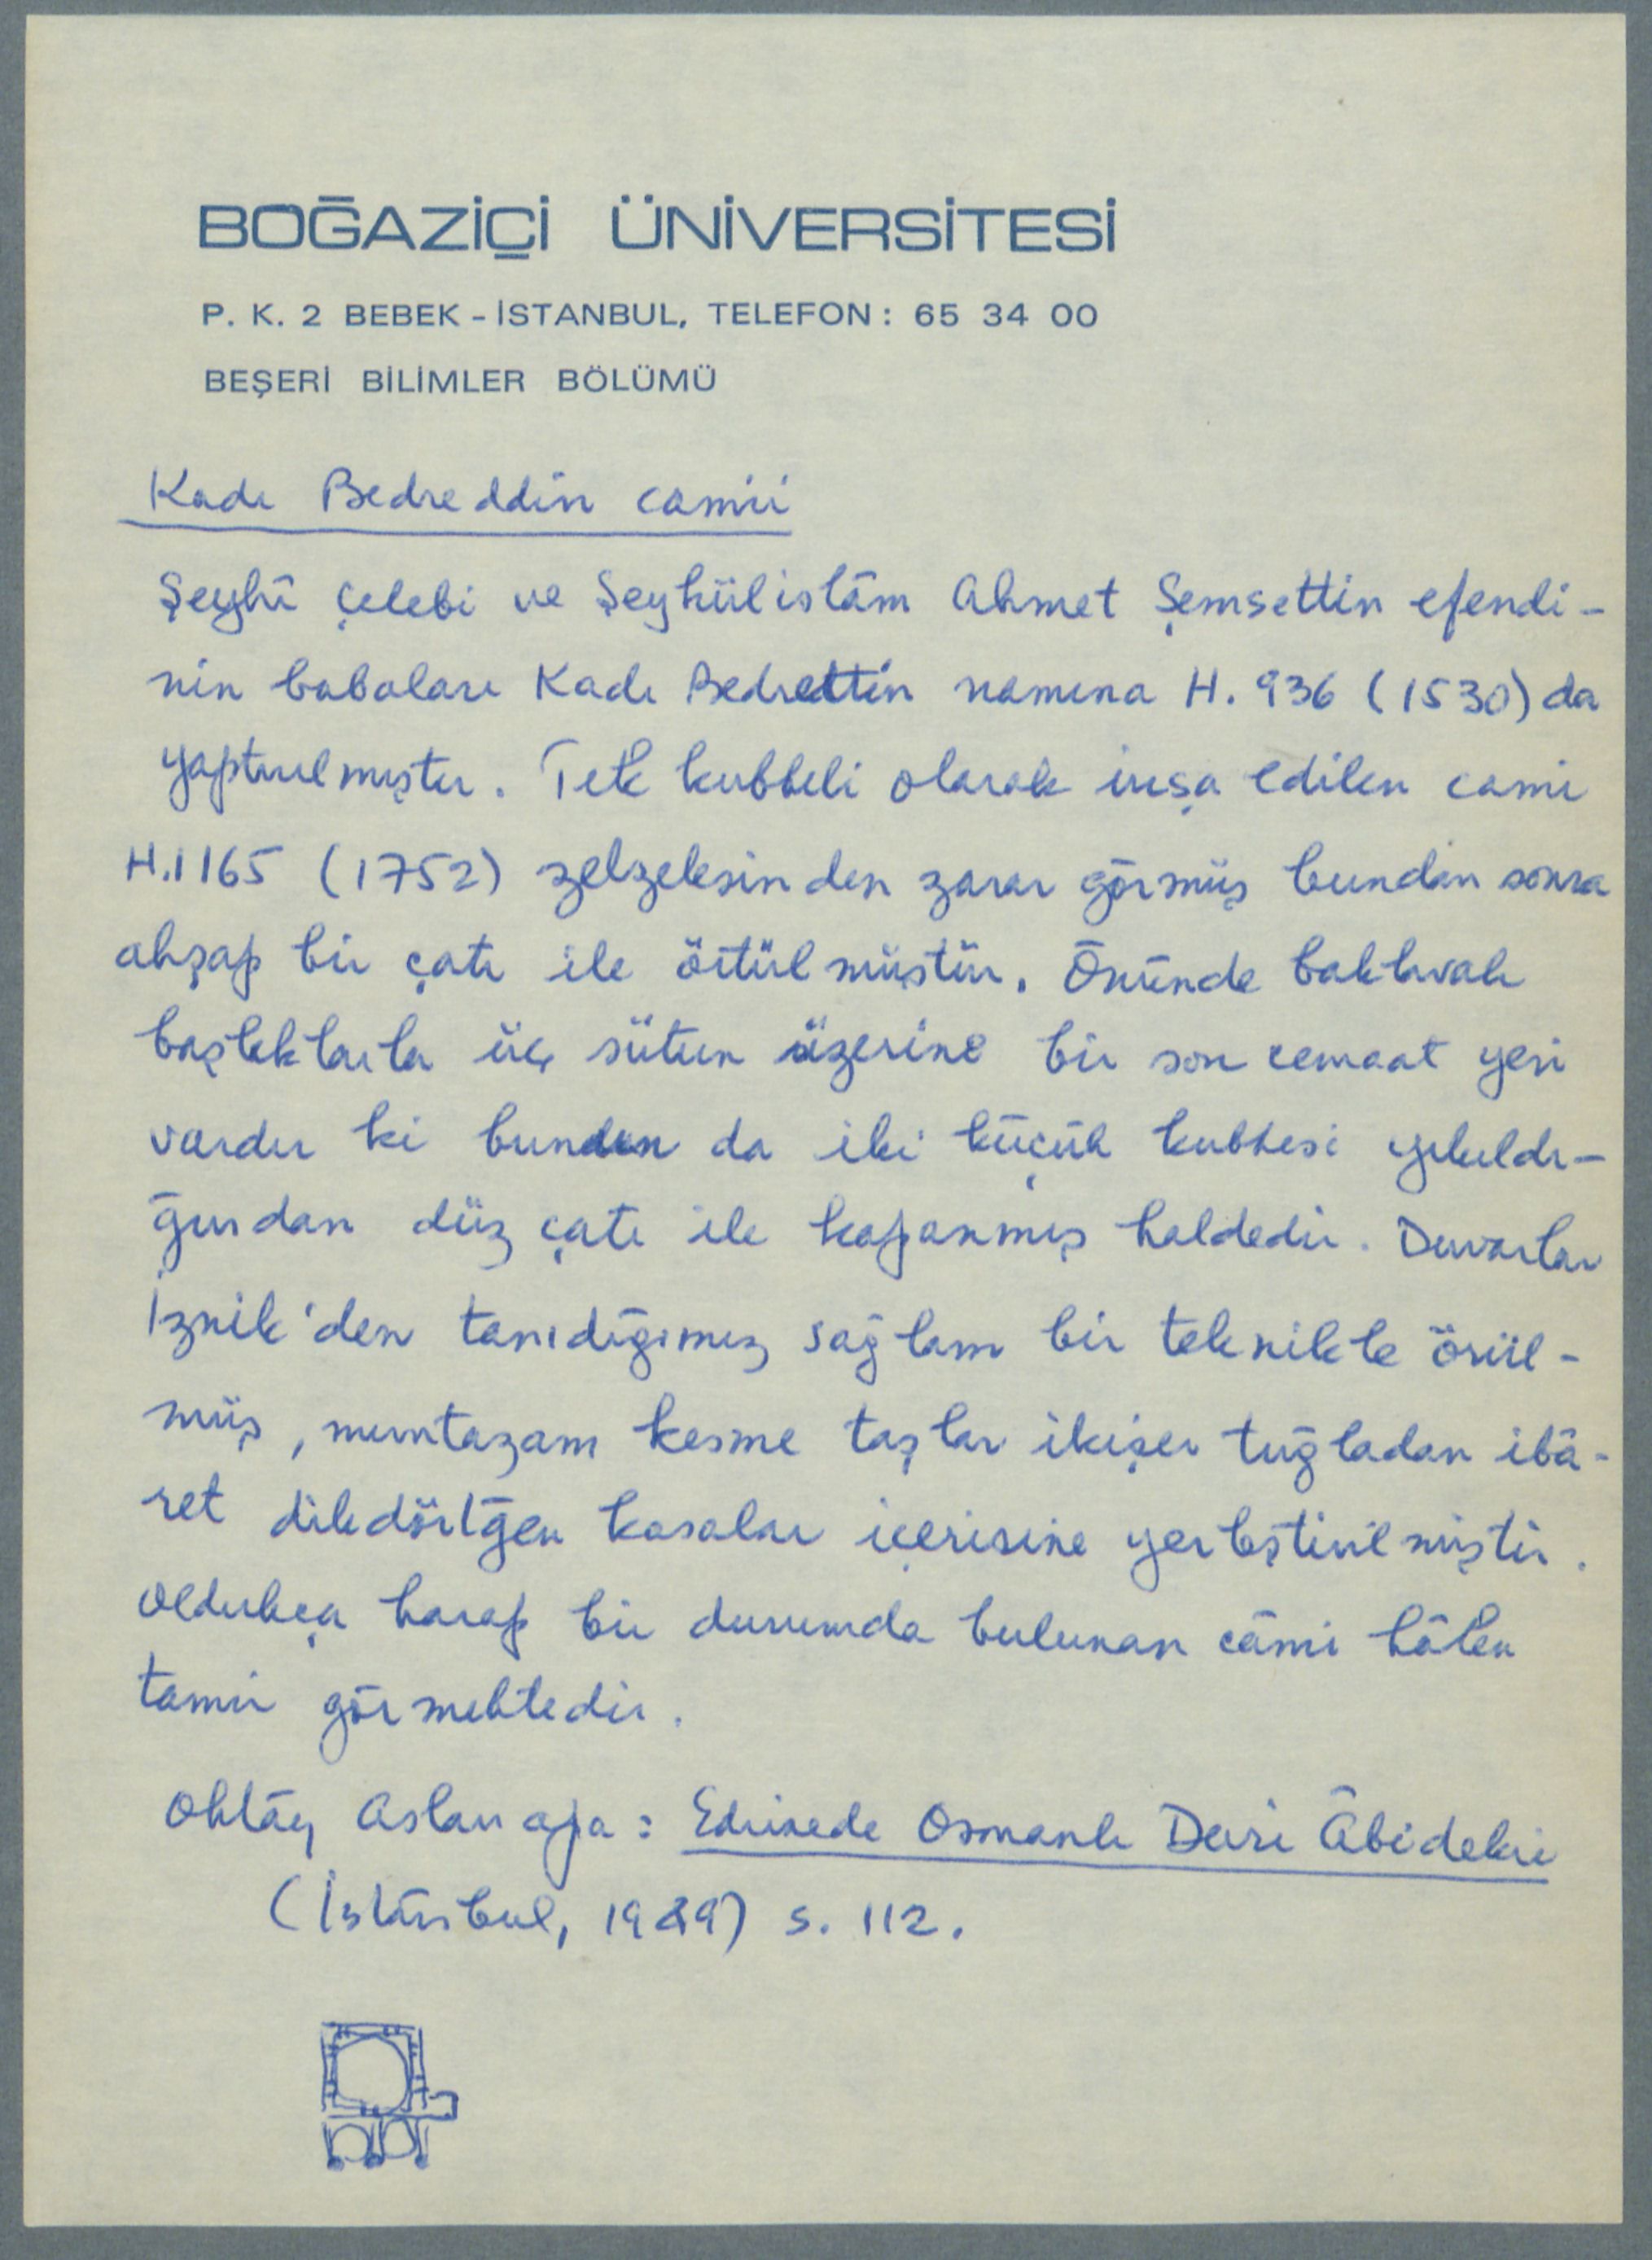 BOĞAZİÇİ ÜNİVERSİTESİ
P. K. 2 BEBEK - İSTANBUL, TELEFON : 65 34 00
BEŞERİ BİLİMLER BÖLÜMÜ
Kadı Bedreddin camii
Şeyhî Çelebi ve Şeyhülislâm Ahmet Şemsettin efendi-
nin babaları Kadı Bedrettin namına H. 936 (1530) da
yaptırılmıştır. Tek kubbeli olarak inşa edilen cami
H.1165 (1752) zelzelesinden zarar görmüş bundan sonra
ahşap bir çatı ile örtülmüştür. Önünde baklavalı
başlıklarla üç sütun üzerine bir son cemaat yeri
vardır ki bunden da iki küçük kubbesi yıkıldı-
ğından düz çatı ile kapanmış haldedir. Duvarlar
İznik'den tanıdığımız sağlam bir teknikle örül-
müş, muntazam kesme taşlar ikişer tuğladan ibâ-
ret dikdörtgen kasalar içerisine yerleştirilmiştir.
Oldukça harap bir durumda bulunan câmi hâlen
tamir görmektedir.
Oktay Aslanapa : Edirnede Osmanlı Devri Âbideleri
(İstanbul, 1949) s. 112.